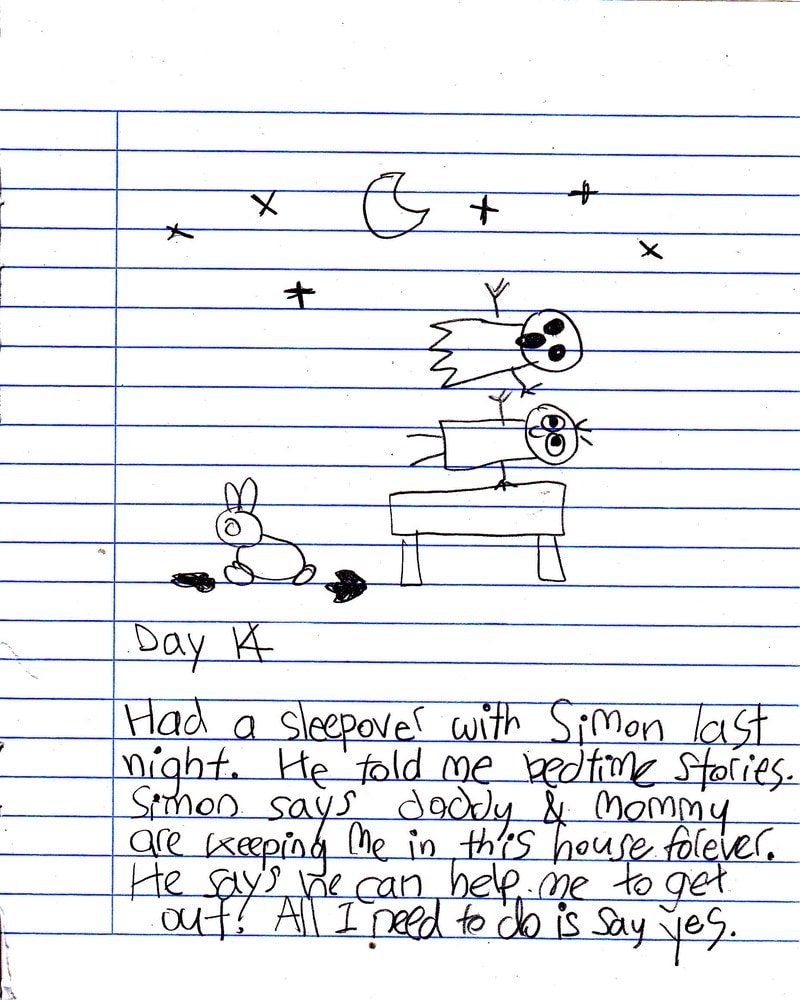 Day 14
Had a sleepover with Simon last
night. He told me bedtime stories.
Simon says daddy & mommy
are keeping me in this house forever.
He says he can help me to get
out! All I need to do is say yes.